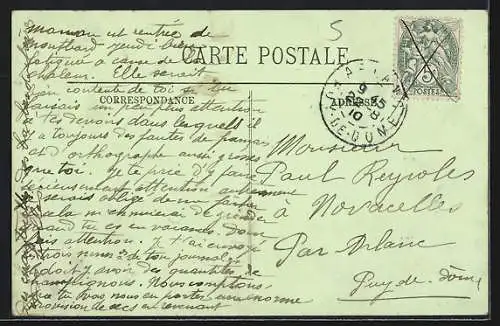 5
maman est rentrée de
montbard jeudi bien
fatiguée à cause de la
chaleur. Elle serait
bien contente de toi si tu
faisais un peu plus attention
à tes devoirs dans lesquels il
y a toujours des fautes de français
et d'orthographe aussi grosses
que toi. Je te prie d'y faire
sérieusement attention autrement
je serais obligé de me fâcher
cela m'ennuierai de gronder
quand tu es en vacances. Donc
fais attention. Je t'ai envoyé
trois numéros de ton journal
doit y avoir des quantités de
champignons. Nous comptons
que tu vas nous en porter une énorme
provision de secs en revenant
CARTE POSTALE
CORRESPONDANCE
ADRESSE
Monsieur
Paul Reynoles
à Novacelles
Par Arlanc
Puy-de-dôme
ARLANC
9 25
8
10
PUY-DE-DOME
5
POSTES